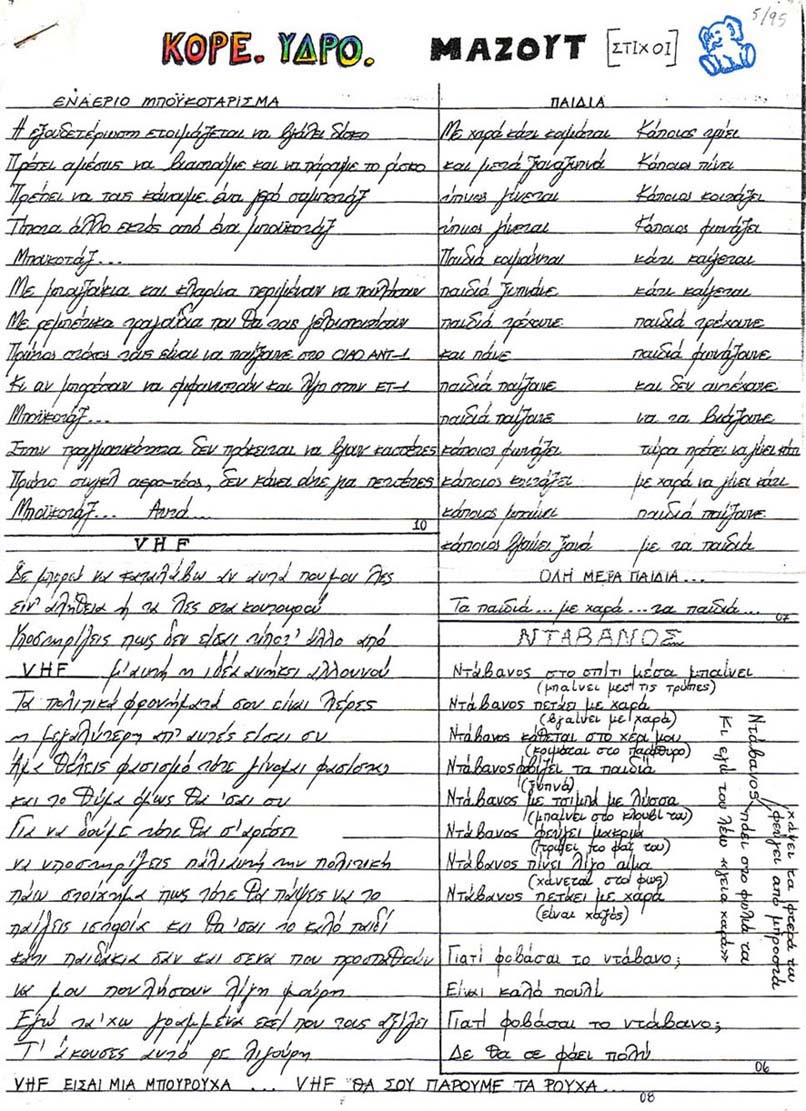 5/95
ΚΟΡΕ. ΥΔΡΟ. ΜΑΖΟΥΤ [ΣΤΙΧΟΙ]
ΕΝΑΕΡΙΟ ΜΠΟΫΚΟΤΑΡΙΣΜΑ
Η εξουδετέρωση ετοιμάζεται να βγάλει δίσκο
Πρέπει αμέσως να βιαστούμε και να πάρουμε το ρίσκο
Πρέπει να τους κάνουμε ένα γερό σαμποτάζ
Τίποτα άλλο εκτός από ένα μποϊκοτάζ
Μποϊκοτάζ...
Με μπουζούκια και κλαρίνα περιμένουν να πουλήσουν
Με ρεμπέτικα τραγούδια που θα τους
Πρώτος στόχος τους είναι να παίξουνε στο CIAO ANT-1
Κι αν μπορέσουν να εμφανιστούν και λίγο στην ΕΤ-1
Μποϊκοτάζ...
Στην πραγματικότητα δεν πρόκειται να βγουν κασσέτες
Πρώτο σινγκλ αερο-τέος, δεν κάνει ούτε για πετσέτες
Μποϊκοτάζ... Αυτά...
10
VHF
Δε μπορώ να καταλάβω αν αυτά που μου λες
ειν' αλήθεια ή τα λες στα κουτουρού
Υποστηρίζεις πως δεν είσαι τίποτ' άλλο από
VHF μ' αυτή η ιδέα ανήκει αλλουνού
Τα πολιτικά φρονήματά σου είναι λέρες
η μεγαλύτερη απ' αυτές είσαι συ
Άμα θέλεις φασισμό τότε γίνομαι φασίστας
και το θύμα όμως θα 'σαι συ
Για να δούμε τότε θα σ' αρέσει
να υποστηρίζεις πάλι αυτή την πολιτική
πάω στοίχημα πως τότε θα πάψεις να το
παίζεις ιστορία κι θα 'σαι το καλό παιδί
κάτι παιδάκια σαν και σένα που προσπαθούν
να μου πουλήσουν λίγη μούρη
Εγώ τα 'χω γραμμένα εκεί που τους αξίζει
Τ' άκουσες αυτό ρε λιγούρη
VHF ΕΙΣΑΙ ΜΙΑ ΜΠΟΥΡΟΥΧΑ ... VHF ΘΑ ΣΟΥ ΠΑΡΟΥΜΕ ΤΑ ΡΟΥΧΑ...
08
ΠΑΙΔΙΑ
Με χαρά κάτι καμάται
και μετά ξαναξυπνά
ήπιος γίνεται
ήπιος γίνεται
Παιδιά κοιμούνται
παιδιά ξυπνάνε
παιδιά τρέχουνε
και πάνε
παιδιά παίζουνε
παιδιά παίζουνε
κάποιος φωνάζει
κάποιος κοιτάζει
κάποιος μπαίνει
κάποιος βγαίνει ξανά
Κάποιος τρώει
Κάποιος πίνει
Κάποιος κοιτάζει
Κάποιος φωνάζει
κάτι καίγεται
κάτι καίγεται
παιδιά τρέχουνε
παιδιά φωνάζουνε
και δεν αντέχουνε
να τα βιάζουνε
τώρα πρέπει να γίνει κάτι
με χαρά να γίνει κάτι
παιδιά παίζουνε
με τα παιδιά
ΟΛΗ ΜΕΡΑ ΠΑΙΔΙΑ...
Τα παιδιά... με χαρά... τα παιδιά...
07
ΝΤΑΒΑΝΟΣ
Ντάβανος στο σπίτι μέσα μπαίνει
(μπαίνει μεσ' τις τρύπες)
Ντάβανος πετάει με χαρά
(βγαίνει με χαρά)
Ντάβανος κάθεται στο χέρι μου
(κοιμάσαι στο παράθυρο)
Ντάβανος φοβίζει τα παιδιά
(ξυπνά)
Ντάβανος με τσιμπά με λύσσα
(μπαίνει στο κλουβί του)
Ντάβανος φεύγει μακριά
(τρώει το φαΐ του)
Ντάβανος πίνει λίγο αίμα
(χάνεται στο φως)
Ντάβανος πετάει με χαρά
(είναι χαζός)
Γιατί φοβάσαι το ντάβανο;
Είναι καλό πουλί
Γιατί φοβάσαι το ντάβανο;
Δε θα σε φάει πολύ
06
χάνει τα φτερά του
φεύγει από μπροστά
Ντάβανος πάει στο φωλιά του
Κι εγώ του λέω «γεια χαρά»